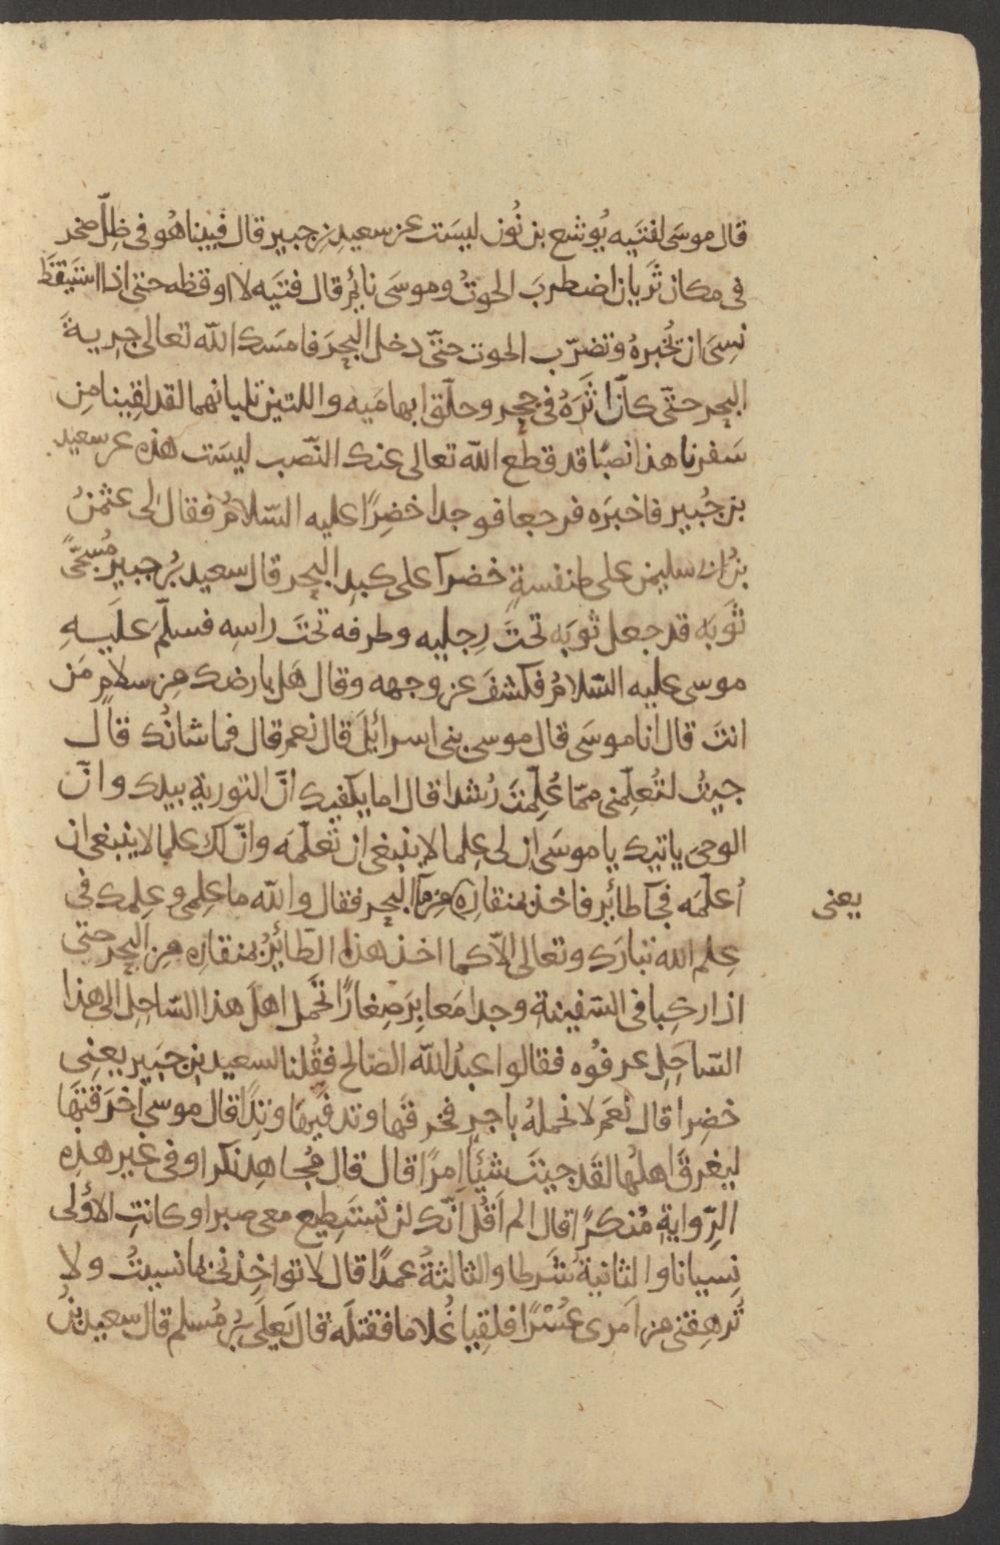 قال موسى لفتيه يُوشع بن نُون ليسَت عن سعيدِ بن جبير قال فبينا هُو فى ظِلّ صخر
فى مكان ثَريان اضطربَ الحوتُ وموسَى نائمٌ قال فتيَه لا اوقظه حتى اذا استيقظَ
نسِىَ ان يُخبرهُ وتضرّب الحوت حتّى دخل البحرَ فامسَك الله تعالى جِريةَ
البحر حتّى كانّ اثَرَهُ فى حجر وحلّق ابهامَيه واللتين تليانهما لقد لقِينا مِن
سَفرنا هذا نصبًا قد قطع الله تعالى عنك النّصب ليسَت هذه عن سعيد
بن جُبير فاخبَره فرجعا فوجدا خضِرًا عليه السّلامُ فقال لى عثمنُ
بنُ ابى سليمن على طنفسةٍ خضرآ على كبدِ البحر قال سعيد بنُ جبير مُسجًّى
ثَوبَه قد جعل ثوبَه تحتَ رِجليه وطرفه تحتَ راسِه فسلّم علَيهِ
موسى عليه السّلامُ فكشفَ عن وجهه وقال هَل بارضك مِن سلامٍ مَن
انتَ قال انا موسَى قال موسى بنى اسرائلَ قال نعم قال فما شانُك قال
جيتُ لتُعلّمنى ممّا عُلّمتَ رُشدا قال اما يكفيك انّ التوريةِ بيدك وانّ
الوحىَ ياتيك يا موسَى ان لى عِلما لا ينبغى ان تَعلَمَه وانّ لك علما لا ينبغى ان
اُعلَمَه فجآ طائرٌ فاخذ بمنقارِه من مآ البحر فقال والله ما عِلمى وعِلمك فى
يعنى
عِلم الله تبارَك وتعالى الاّ كما اخذ هذا الطّائرُ بمنقارِه مِن البحر حتى
اذا ركِبا فى السّفينة وجدا مَعابِرَ صِغارًا تحمل اهلَ هذا السّاحِلِ الى هذا
السّاحِلِ عرفوُه فقالوا عبدُ الله الصّالح فقُلنا لسعيد بنِ جبَير يعنِى
خضِرا قال نعَم لا نحملهُ باجرٍ فخرقَها وتد فيها وتِدًا قال موسى اخرَقتَها
ليغرقَ اهلُها لقَد جيتَ شيئًا امرًا قال قال مُجاهِد نكرا وفى غير هذِه
الرّوايةِ مُنكرًا قال الم اَقُل انّك لن تستَطيع معى صبرا وكانتِ الاوُلى
نِسيانا والثانيةُ شَرطا والثالثةُ عمدًا قال لا تواخِذنى بما نسيتُ ولا
تُرهِقنى من اَمرى عسُرًا فلقِيا غُلاما فقتلَه قال يَعلَى بنُ مُسلم قال سعيد بنُ